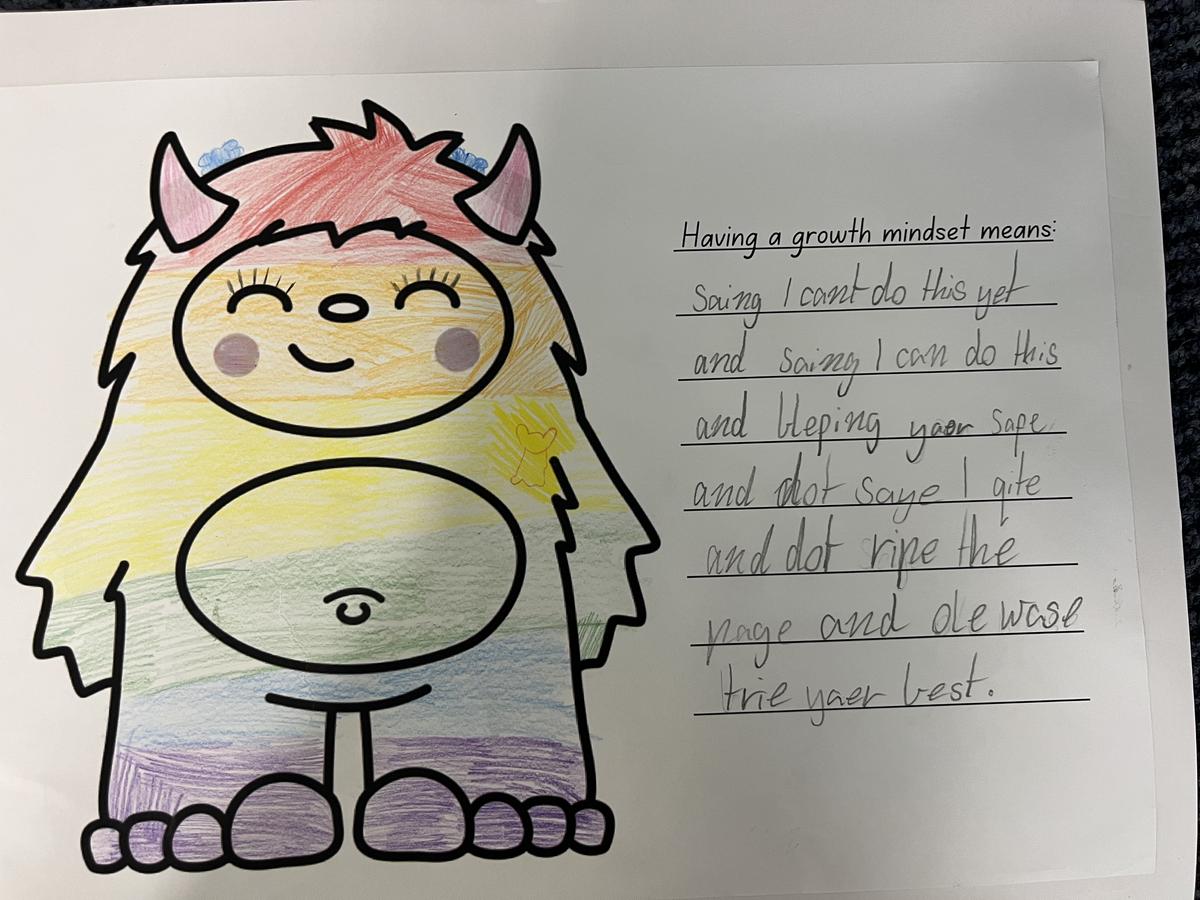 Having a growth mindset means:
saing I cant do this yet
and saing I can do this
and bleping yaer sape
and dot saye I qite
and dot ripe the
page and ole wase
trie yaer best.